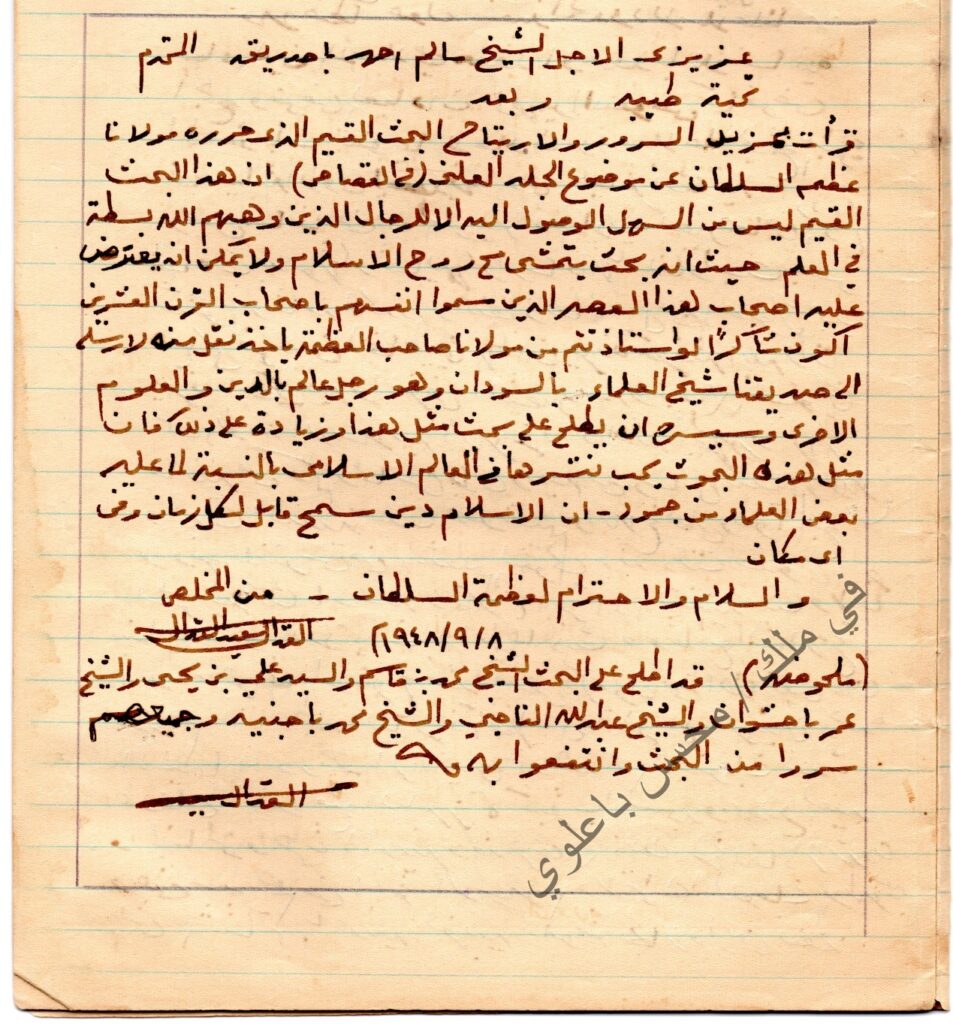 عزيزى الاجل الشيخ سالم احمد باصديق المحترم
تحية طيبه وبعد
قرأت بمزيل السرور والاريتاح البحث القيم الذى حرره مولانا
عظيم السلطان عن موضوع الجلد العلنى (فى القصاص) ان هذا البحث
القيم ليس من السهل الوصول اليه الا للرجال الذين وهبهم الله بسطة
في العلم حيث انه بحث يتمشى مع روح الاسلام ولا يمكن ان يعترض
عليه اصحاب هذا العصر الذين سموا انفسهم باصحاب القرن العشرين
اكون شاكرًا لو استاذنتم من مولانا صاحب العظمة باخذ نقل منه لارسله
الى صديقنا شيخ العلماء بالسودان وهو رجل عالم بالدين والعلوم
الاخرى وسيسره ان يطلع على بحث مثل هذا وزيادة على ذلك فان
مثل هذه البحوث يجب نشرها فى العالم الاسلامى بالنسبة لما عليه
بعض العلماء من جمود - ان الاسلام دين سمح قابل لكل زمان وفى
اى مكان
والسلام والاحترام لعظمة السلطان - من المخلص
القدال سعيد القدال
١٩٤٨/٩/٨م
(ملحوظه) قد اطلع على البحث الشيخ محمد بن قاسم والسيد علي بن يحى والشيخ
عمر باحشوان والشيخ عبدالله الناخبي والشيخ محمد باجنيد وجميعهم
سروا من البحث وانتفعوا به
القدال
في ملك / محسن باعلوي